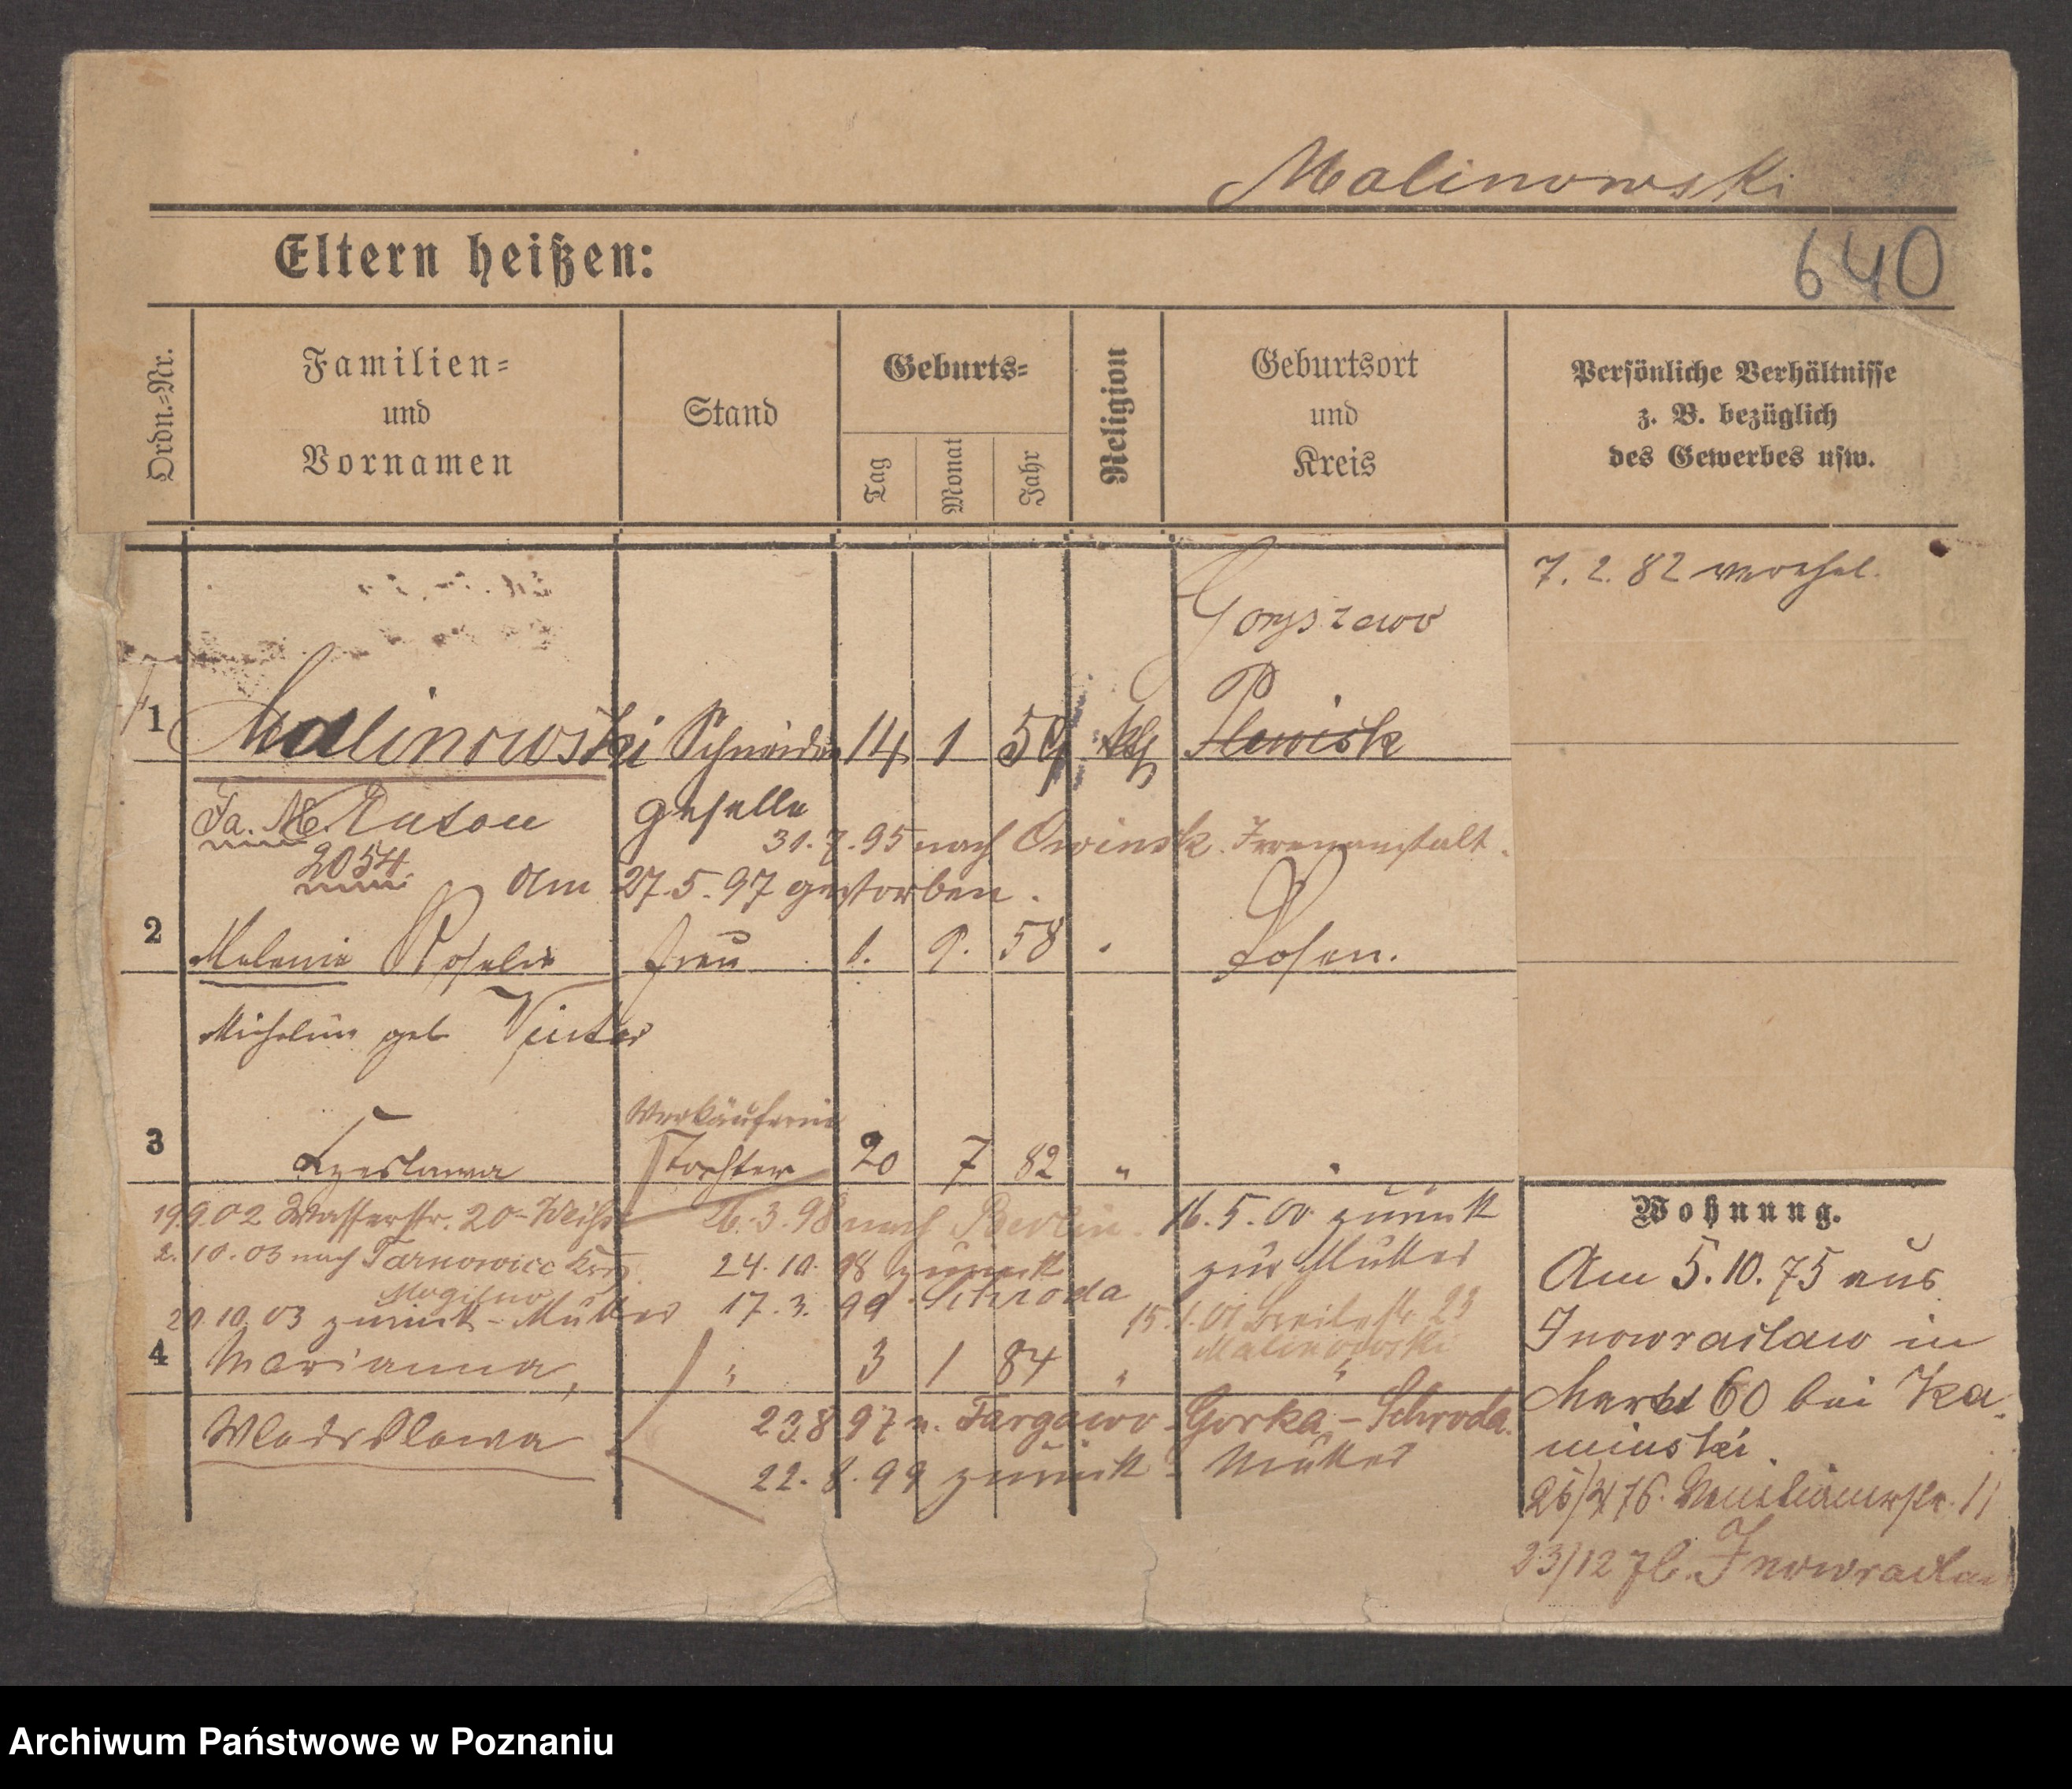 Malinowski
640
Eltern heißen:
Ordn.=Nr.
Familien=
und
Vornamen
Stand
Geburts=
Tag
Monat
Jahr
Religion
Geburtsort
und
Kreis
Persönliche Verhältnisse
z. B. bezüglich
des Gewerbes usw.
7. 2. 82 verehel.
Goryszewo
1 Malinowski Schneider 14 1 59 kth Plewisk
Fa. M. geselle
2054.
31.7.95 nach Owinsk. Irrenanstalt.
am 27.5.97 gestorben.
2 Melanie Rosalie Frau 1. 9. 58 Posen.
Michalina geb
Verkäuferin
3 Czeslawa Tochter 20 7 82 "
19.9.02 Wasserstr. 20
26.3.98 nach Berlin. 16.5.00 zurück
2.10.03 nach Tarnowice Krs.
Mogilno
24.10.98 zurück
zur Mutter
17.3.99 Schroda
21.10.03 zurück - Mutter
Breitestr 23
Malinowski
4 Marianna, " 3 1 84 " "
Wladislawa
23.8.97 n. Targowo-Gorka-Schroda.
22.8.99 zurück - Mutter
Wohnung.
Am 5.10.75 aus
Inowraclaw in
Markt 60 bei Ka-
minski.
11
23/12 76. Inowraclaw
Archiwum Państwowe w Poznaniu